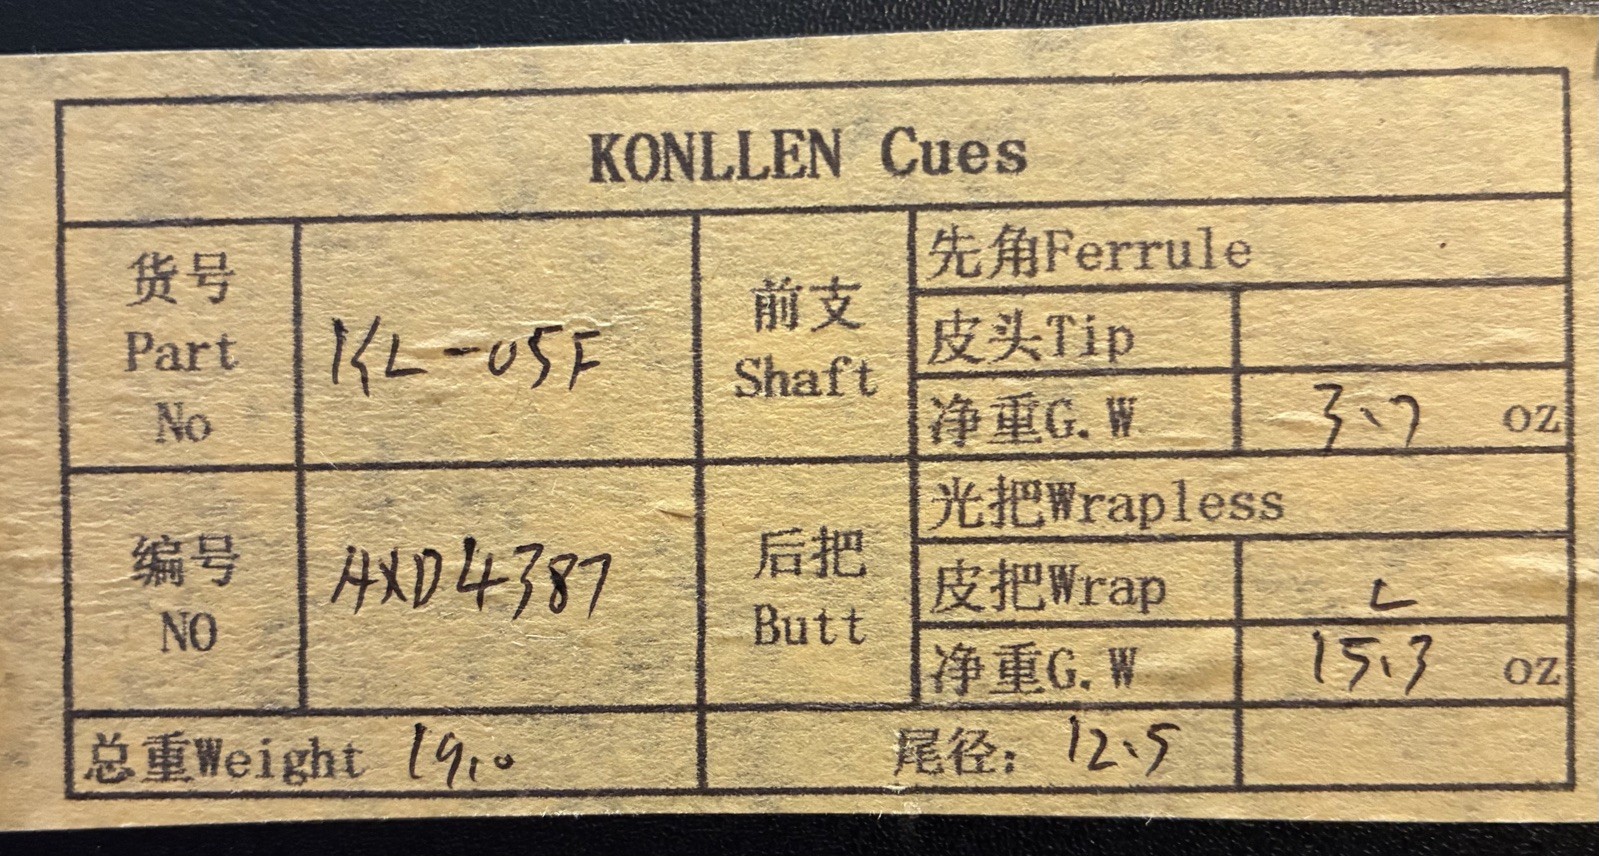 KONLLEN Cues
货号
Part
No
KL-05F
前支
Shaft
先角Ferrule
皮头Tip
净重G.W 3.7 oz
编号
NO
AXD4387
后把
Butt
光把Wrapless
皮把Wrap L
净重G.W 15.3 oz
总重Weight 19.0
尾径: 12.5